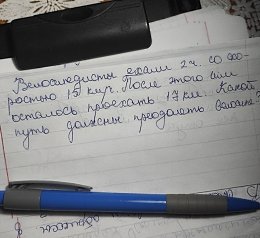 Велосипедисты ехали 2 ч. со ско-
ростью 15 км/ч. После этого им
осталось проехать 17 км. Какой
путь должны преодолеть велоси-